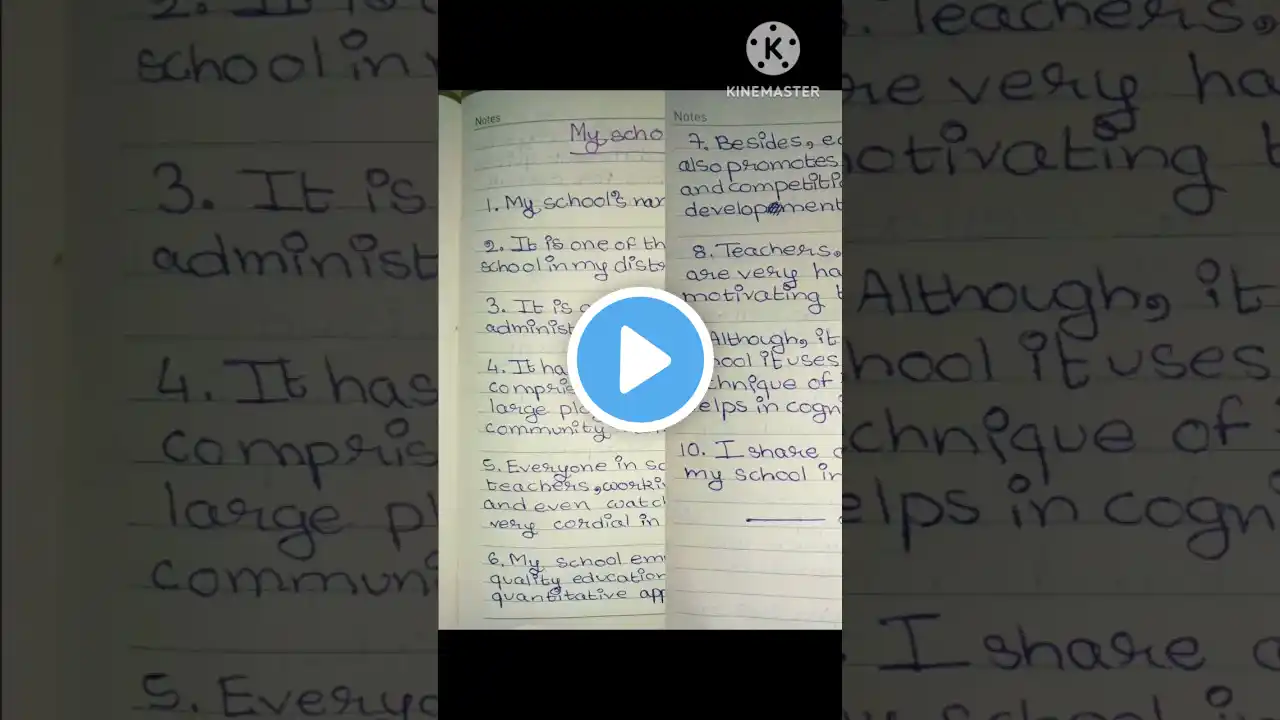 school in
3. It is
administ
4. It has
compris
large pl
commun
5. Everyo
KINEMASTER
Notes
My scho
1. My school's nam
2. It is one of th
school in my dist
3. It is
administ
4. It ha
compri
large pl
community
5. Everyone in sc
teachers, worki
and even watc
very cordial in
6. My school em
quality education
quantitative app
Notes
7. Besides, ec
also promotes
and competiti
development
8. Teachers,
are very ha
motivating t
Although, it
hool it uses
chnique of
elps in cogni
10. I share
my school in
Teachers,
re very ha
otivating t
Although, it
hool it uses
chnique of
elps in cogni
I share
school in